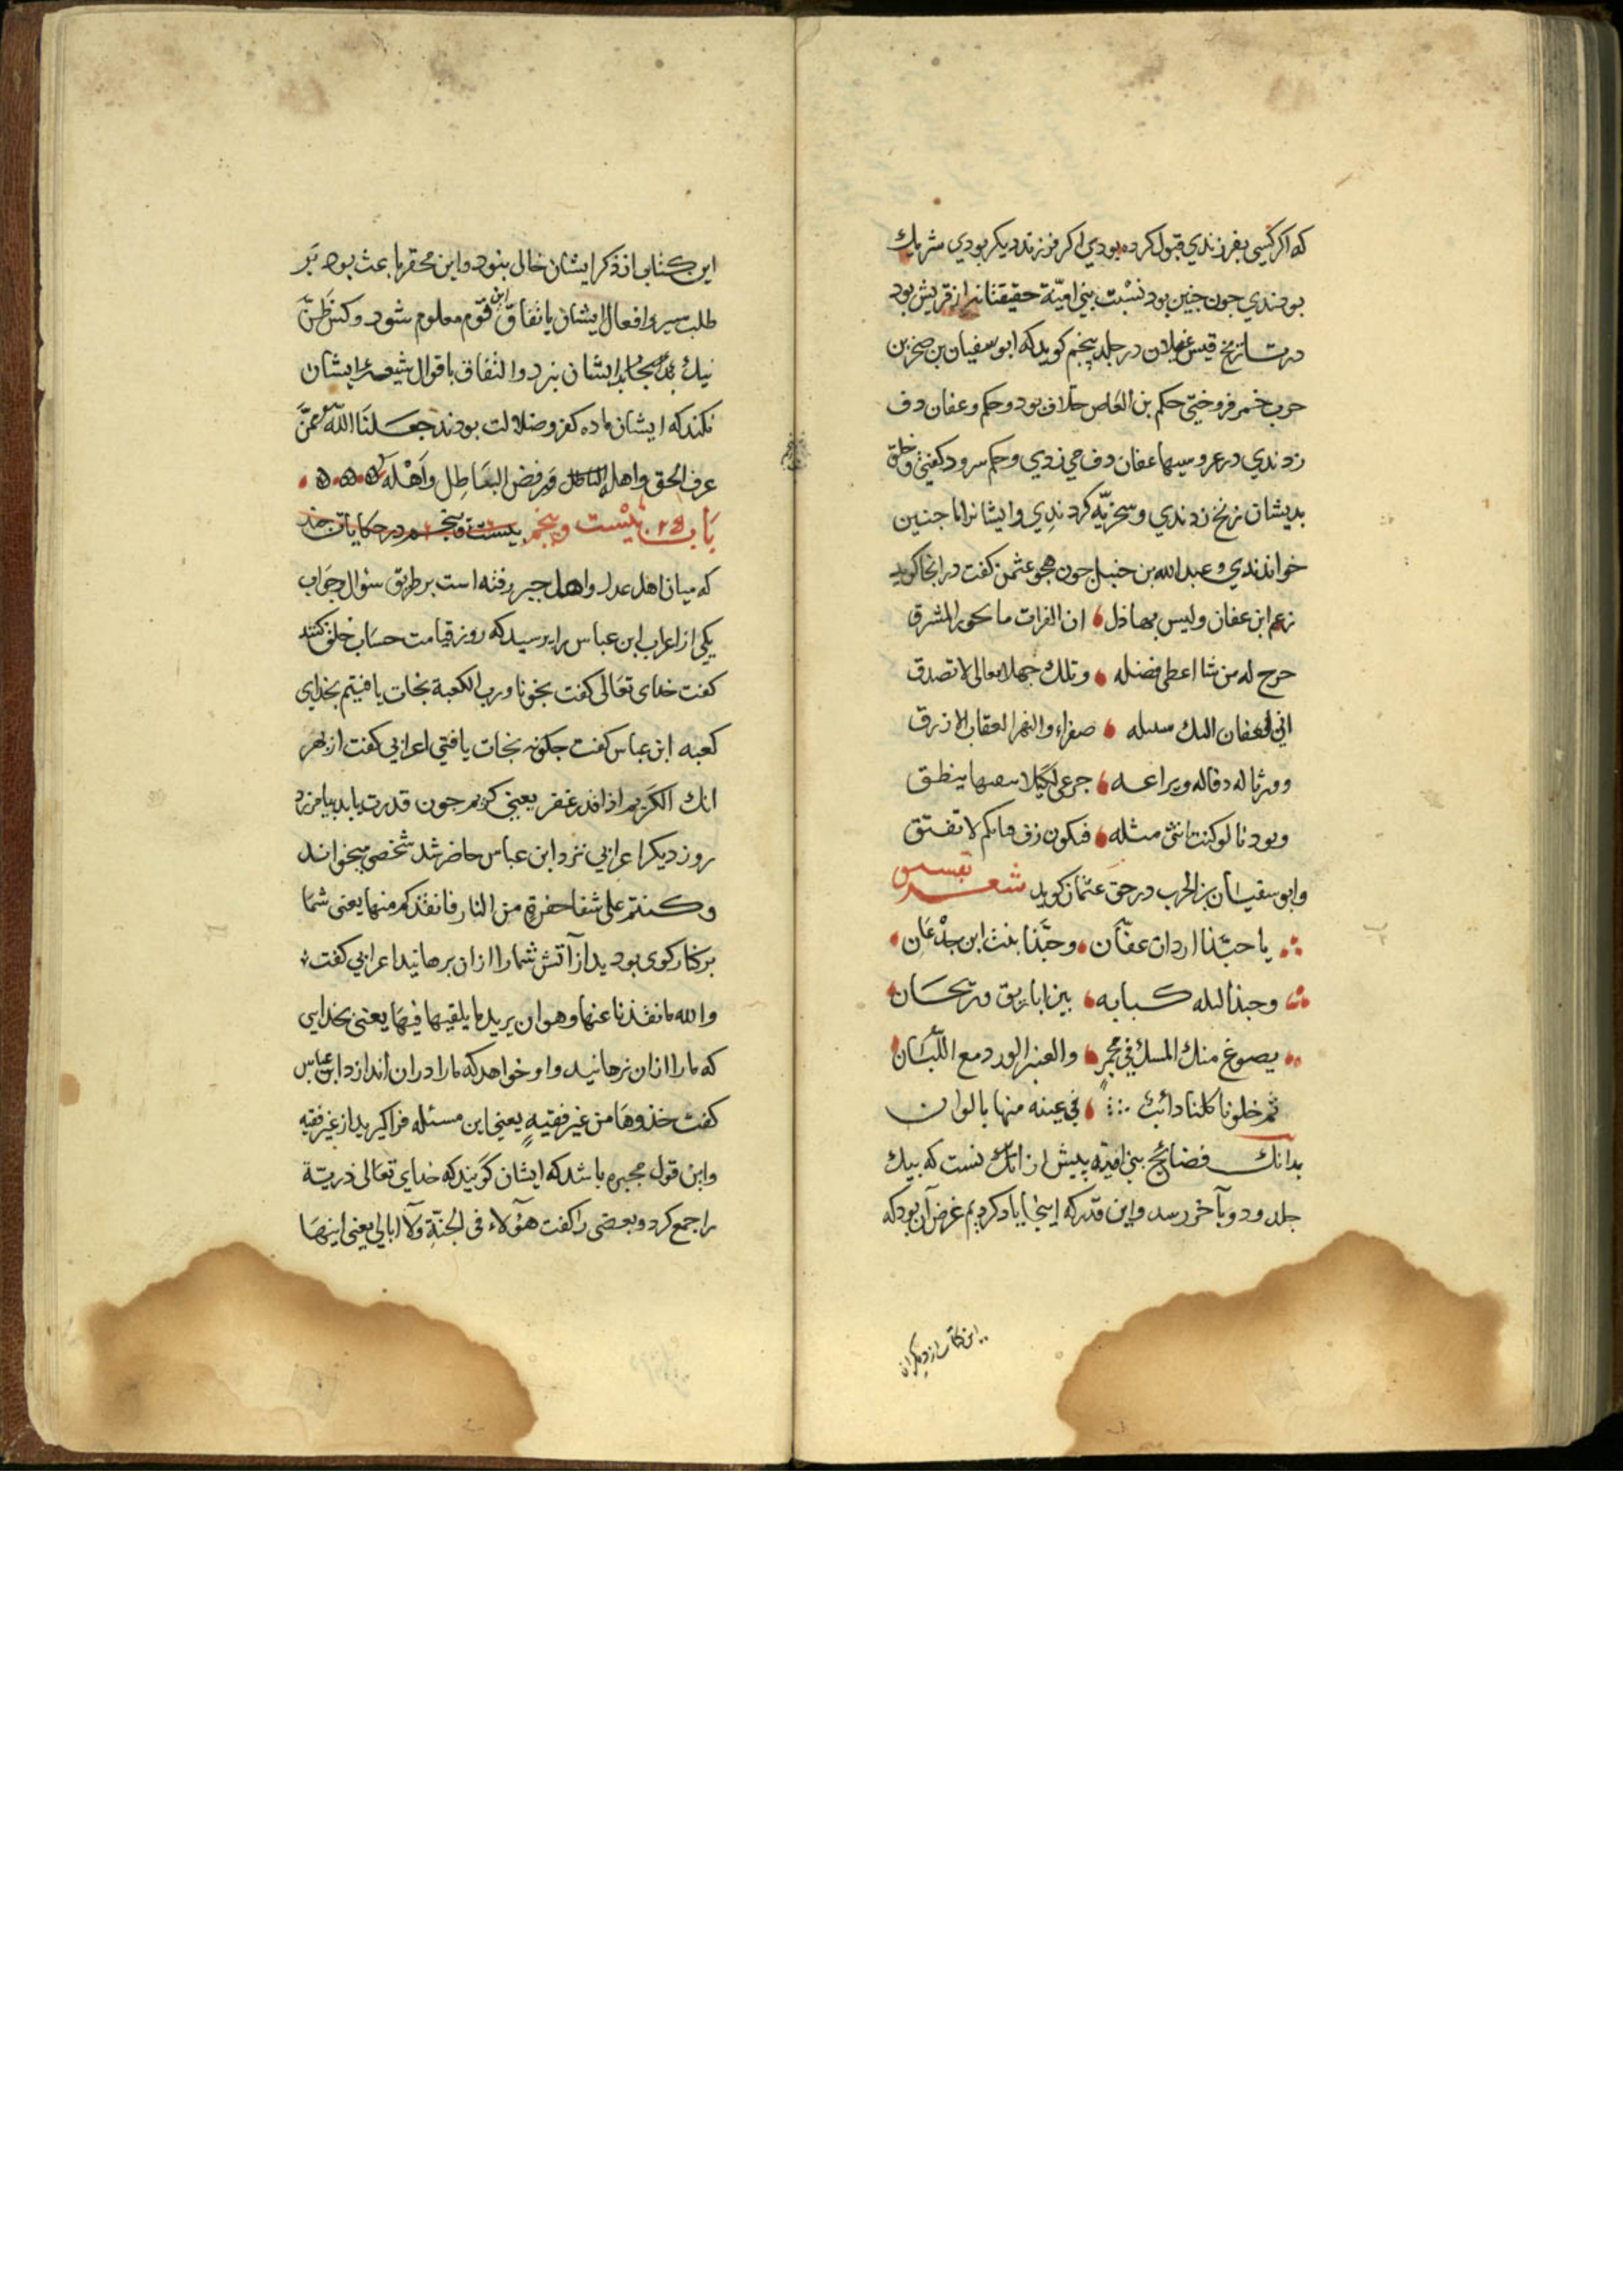 که اکر کسی بفرزندی قبول کرده بودی اکر فرزند دیکر بودی شریك
بودندی جون جنین بود نسبت بنی امیّة حقیقتا نه از قریش بود
در تاریخ قیس غیلان در جلد پنجم کوید که ابو سفیان بن صخر بن
حرب خمر فروختی حکم بن العاص حلاق بود و حکم و عفان دف
زدندی در عروسیها عفان دف می زدی و حکم سرود کفتی و خلق
بدیشان زنخ زدندی و سخریّه کردندی و ایشانرا اما جنین
خواندندی و عبد الله بن حنبل جون هجو عثمن کفت در انجا کوید
زعم ابن عفان ولیس بهاذل ان الفرات ما المشرق
حرج له من شا اعطی فضله وتلك لا تصدق
عفان الیك سبیله صفراء والنهر العقاب الازرق
وورثنا له ینطق
وبودنا لو کنت انثی مثله فتکون لا تفتق
وابو سفیان بن الحرب در حق عثمان کوید شعر
یا حبّذا اردان عفّان وحبّذا بنت ابن جذعان
وحبذا لیله کبابه بین اباریق وریحان
یصوغ منك المسك فی مجمر والعنبر الورد مع اللّبان
ثم خلونا کلنا دائب فی عینه منها بالوان
بدانك فضائح بنی امیّه بیش از انك نست که بیك
جلد و دو بآخر رسد واین قدر که اینجا یاد کردیم غرض آن بود که
این کتاب از دیکران
این کتاب از ذکر ایشان خالی بنود واین محقر باعث بود بر
طلب سیر وافعال ایشان باتفاق این قوم معلوم شود وکس ظنّ
نیك بجاب ایشان نبرد والتفات باقوال شیعۀ ایشان
نکند که ایشان ماده کفر وضلالت بودند جعلنا الله ممّن
عرف الحق واهله ورفض الباطل واهله
باب بیست وپنجم در حکایات جند
که میان اهل عدل واهل جبر رفته است بر طریق سؤال وجواب
یکی از اعراب ابن عباس را پرسید که روز قیامت حساب خلق کنند
کفت خدای تعالی کفت نجونا ورب الکعبة نجات یافتیم بخدای
کعبه ابن عباس کفت جکونه نجات یافتی اعرابی کفت از بهر
انك الکریم اذا قدر غفر یعنی کریم جون قدرت یابد بیامرزد
روز دیکر اعرابی نزد ابن عباس حاضر شد شخصی میخواند
وکنتم علی شفا حفرة من النار فانقذکم منها یعنی شما
بر کنار کوی بودید از آتش شما را از ان برهانید اعرابی کفت
والله ما نقذنا عنها وهو ان یرید ما یلقیها فیها یعنی بخدایی
که ما را از ان نرهانید و او خواهد که ما را در ان اندازد ابن عباس
کفت خذوها من غیر فقیه یعنی این مسئله فرا کیرید از غیر فقیه
واین قول مجبره باشد که ایشان کویند که خدای تعالی ذریة
را جمع کرد وبعضی را کفت هؤلاء فی الجنّة ولا ابالی یعنی اینها